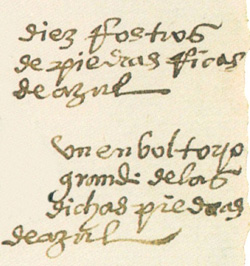 diez Rostros
de piedras ficas
de azul
un enboltorio
grande de las
dichas piedras
de azul